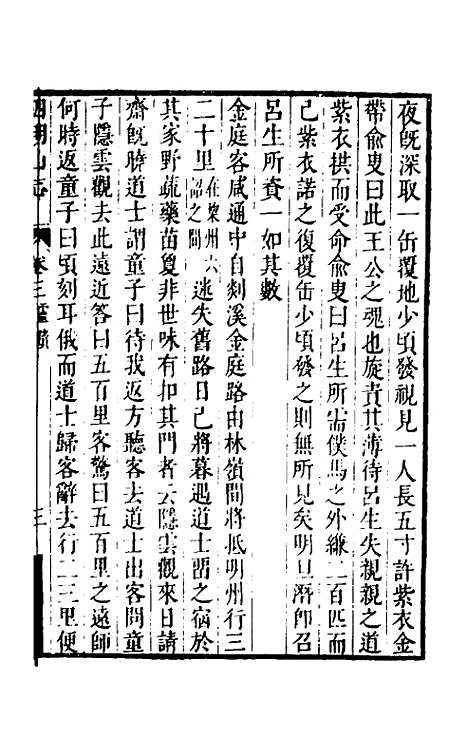 夜既深取一缶覆地少頃發視見一人長五寸許紫衣金
帶俞叟曰此王公之魂也旋責其薄待呂生失親親之道
紫衣拱而受命俞叟曰呂生所需僕馬之外縑二百匹而
已紫衣諾之復覆缶少頃發之則無所見矣明旦潛即召
呂生所資一如其數
金庭客咸通中自剡溪金庭路由林嶺間將抵明州行三
二十里在象州六詔之間迷失舊路日已將暮遇道士習之宿於
其家野蔬藥苗夐非世味有扣其門者云隱雲觀來日請
齋既曉道士謂童子曰待我返方聽客去道士出客問童
子隱雲觀去此遠近答曰五百里客驚曰五百里之遠師
何時返童子曰頃刻耳俄而道士歸客辭去行二三里便
四明山志 卷三靈蹟 三